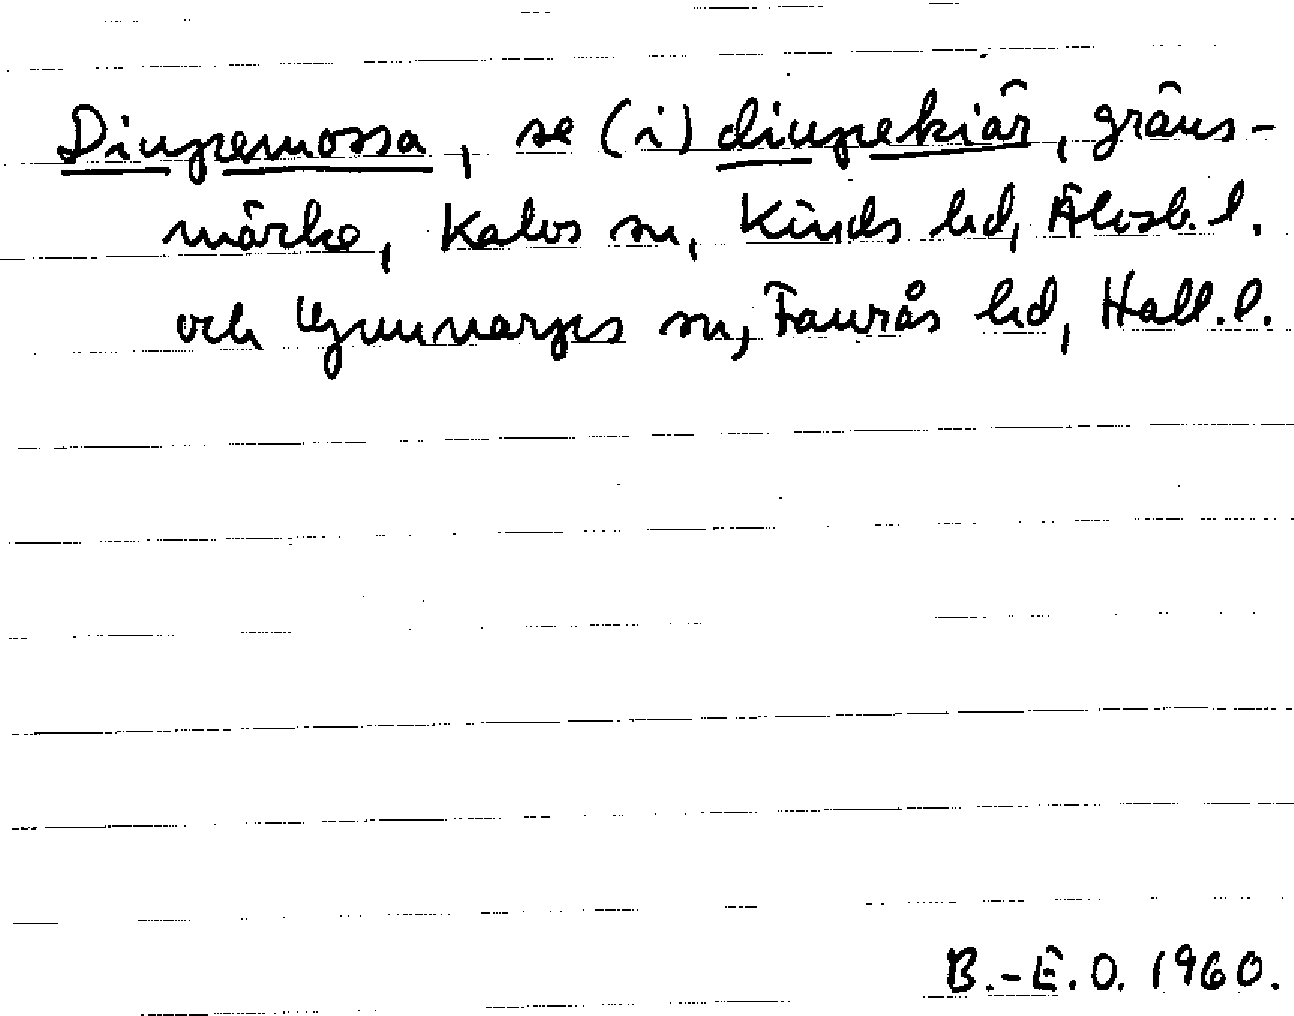 Diupemossa, se (i) diupekiär, gräns-
märke, Kalvs sn, Kinds hd, Älvsb. l.
och Gunnarps sn, Faurås hd, Hall. l.
B.-E. O. 1960.